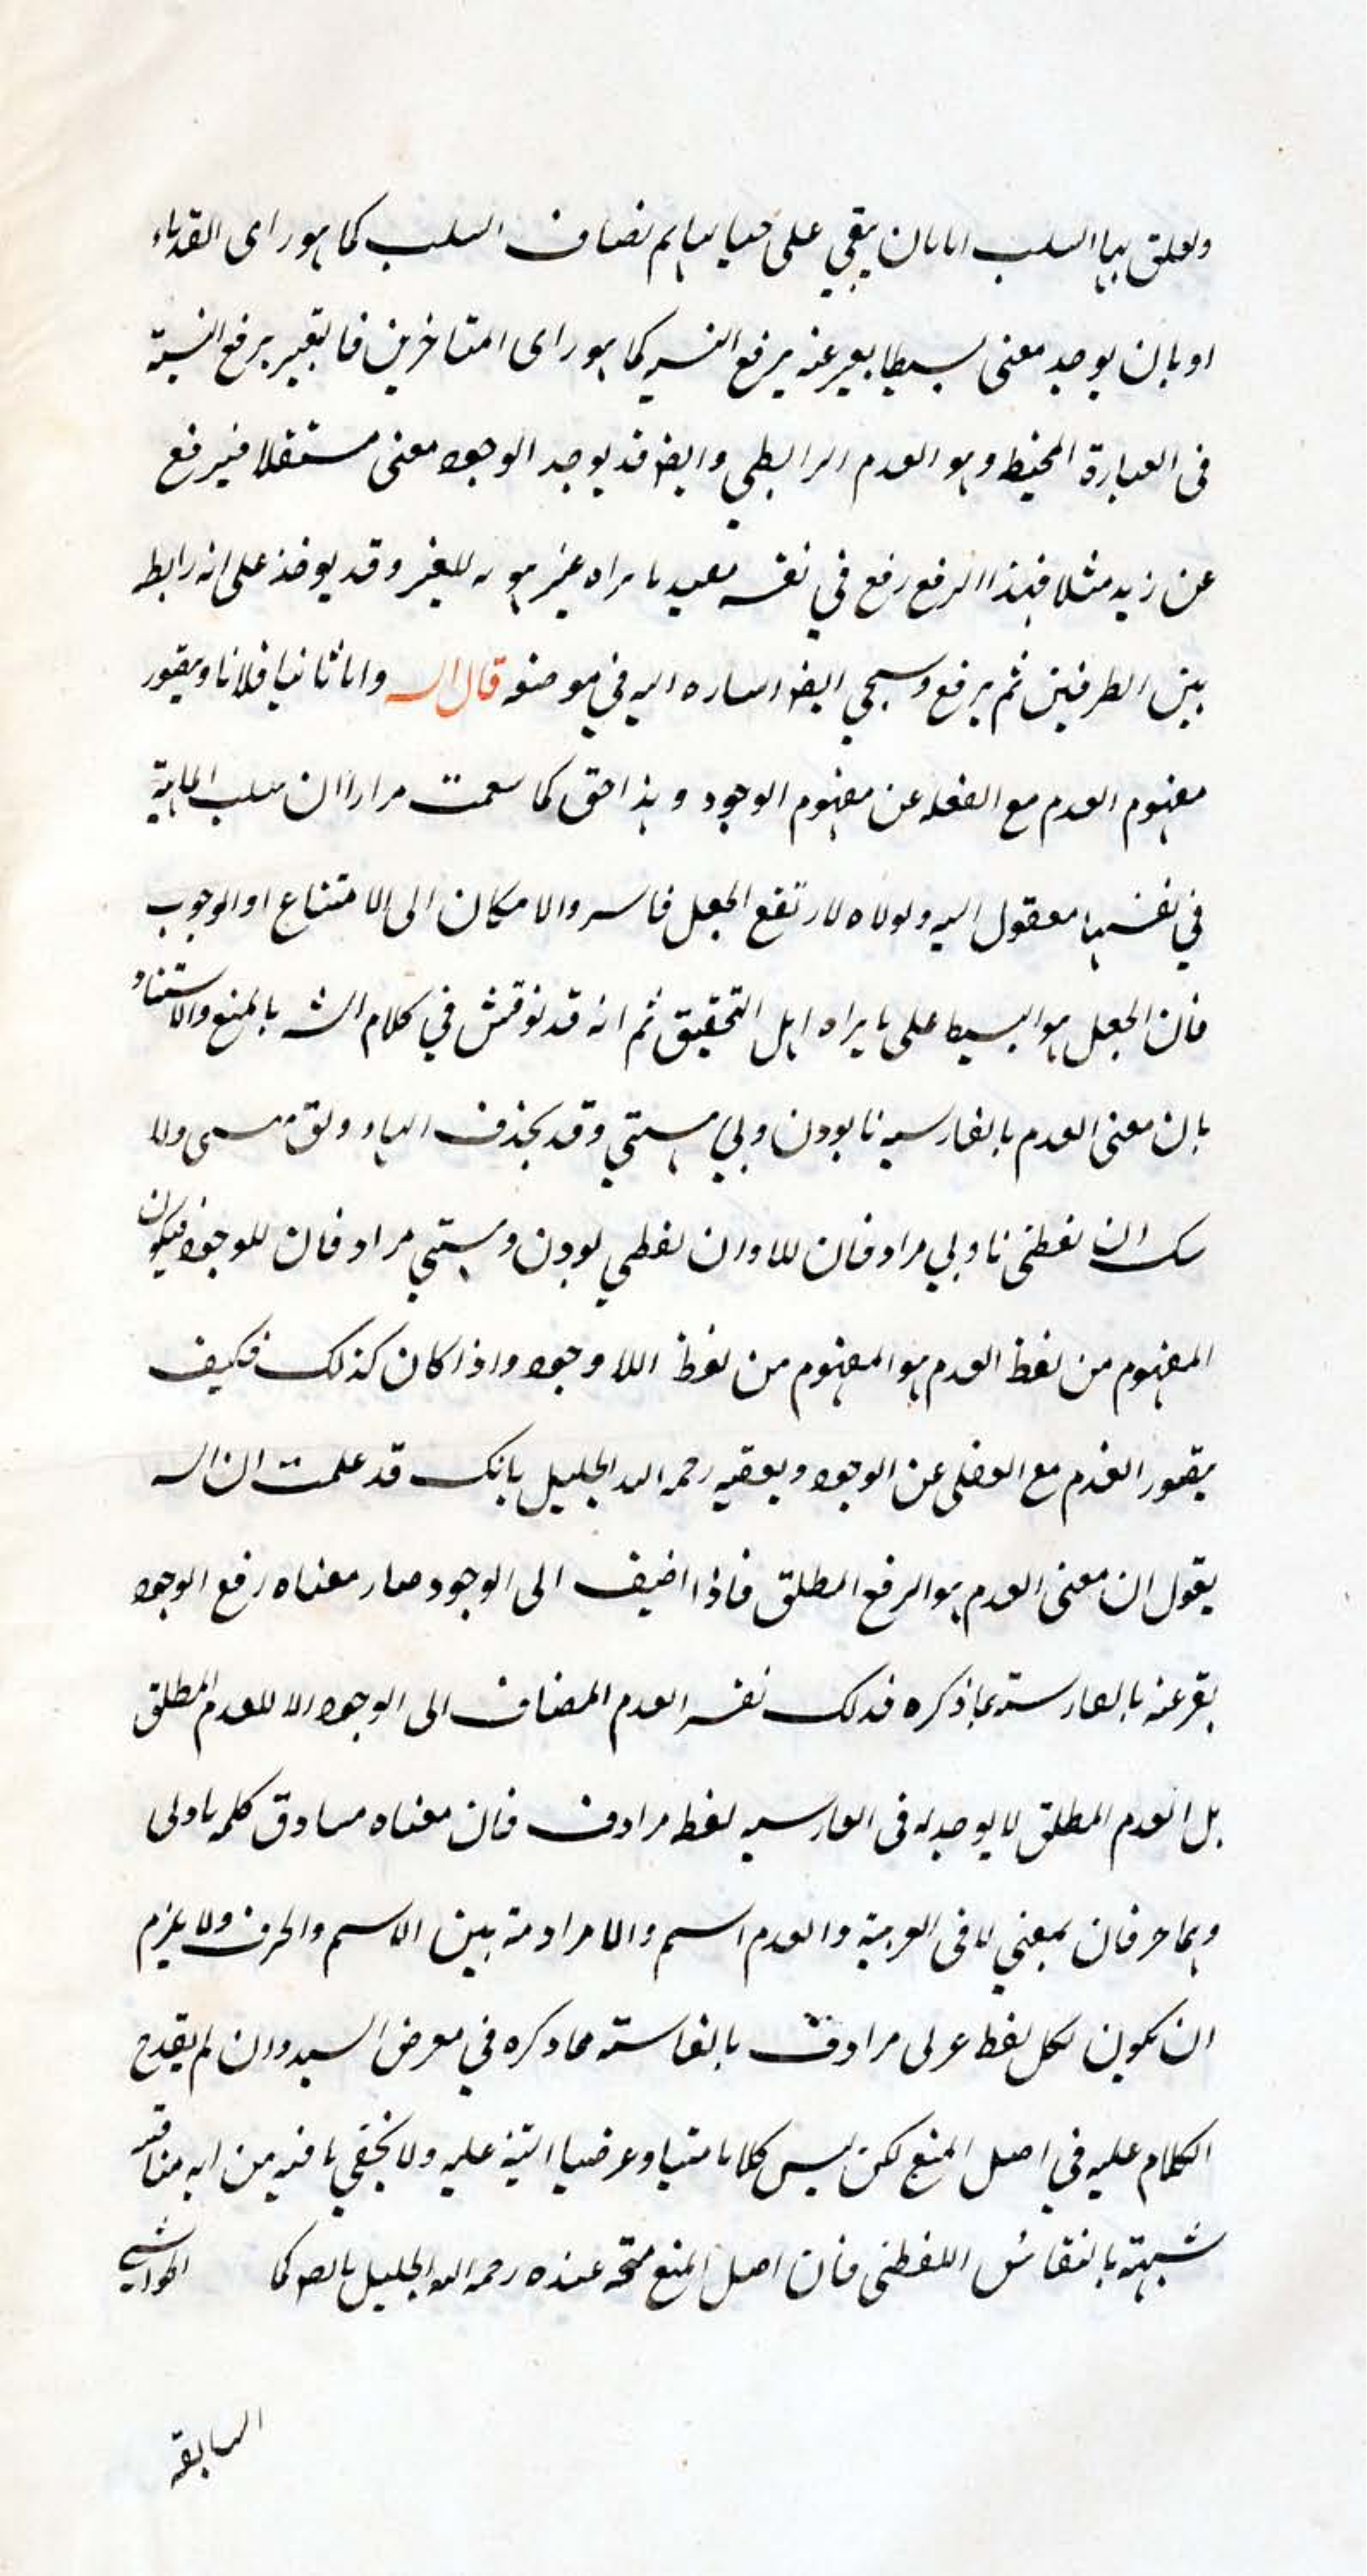 وتعلق بها السلب اما بان يبقي على حيالها ثم تضاف السلب كما هو راى القدماء
او بان يوجد معنى بسيطا يعبر عنه برفع النسبة كما هو راى المتاخرين فالتعبير برفع النسبة
فى العبارة المخيط وهو العدم الرابطي وايضا قد يوجد الوجود معنى مستقلا فيرفع
عن زيد مثلا فهذا الرفع رفع في نفسه غير للغير وقد يوخذ على انه رابط
بين الطرفين ثم يرفع وسيجي ايضا اشاره اليه في موضعه قال الش واما ثانيا فلانا ويتصور
مفهوم العدم مع الغفله عن مفهوم الوجود وهذا حق كما سمعت مرارا ان سلب الماهية
في نفسها معقول اليه ولولاه لارتفع الجعل فاسر والامكان الى الامتناع او الوجوب
فان الجعل هو البسيط على ما يراه اهل التحقيق ثم انه قد نوقش في كلام الش بالمنع والاستناد
بان معنى العدم بالفارسيه نابودن وبي هستي وقد يحذف الهاء ويق نيستى ولا
شك ان لفظى نا وبي مرادفان للا وان لفظي بودن وهستي مرادفان للوجود فيكون
المفهوم من لفظ العدم هو المفهوم من لفظ اللا وجود واذا كان كذلك فكيف
يتصور العدم مع الغفلى عن الوجود ويعقبه رحمه الله الجليل بانك قد علمت ان الش
يقول ان معنى العدم هو الرفع المطلق فاذا اضيف الى الوجود صار معناه رفع الوجود
يعبر عنه بالفارسية بما ذكره فذلك نفس العدم المضاف الى الوجود لا للعدم المطلق
بل العدم المطلق لا يوجد له فى الفارسيه لفظ مرادف فان معناه مساوق كلمه نا وبى
وهما حرفان بمعني لا فى العربية والعدم اسم ولا مرادفة بين الاسم والحرف ولا يلزم
ان يكون لكل لفظ عربى مرادف بالفارسية فما ذكره في معرض السند وان لم يقدح
الكلام عليه في اصل المنع لكن ليس كلاما متينا وعرضنا التنبيه عليه ولا يخفي ما فيه من انه مناقشة
شبيهة بالنقائش اللفظى فان اصل المنع متجه عنده رحمه الله الجليل بالصر كما الحواشي
السابقة